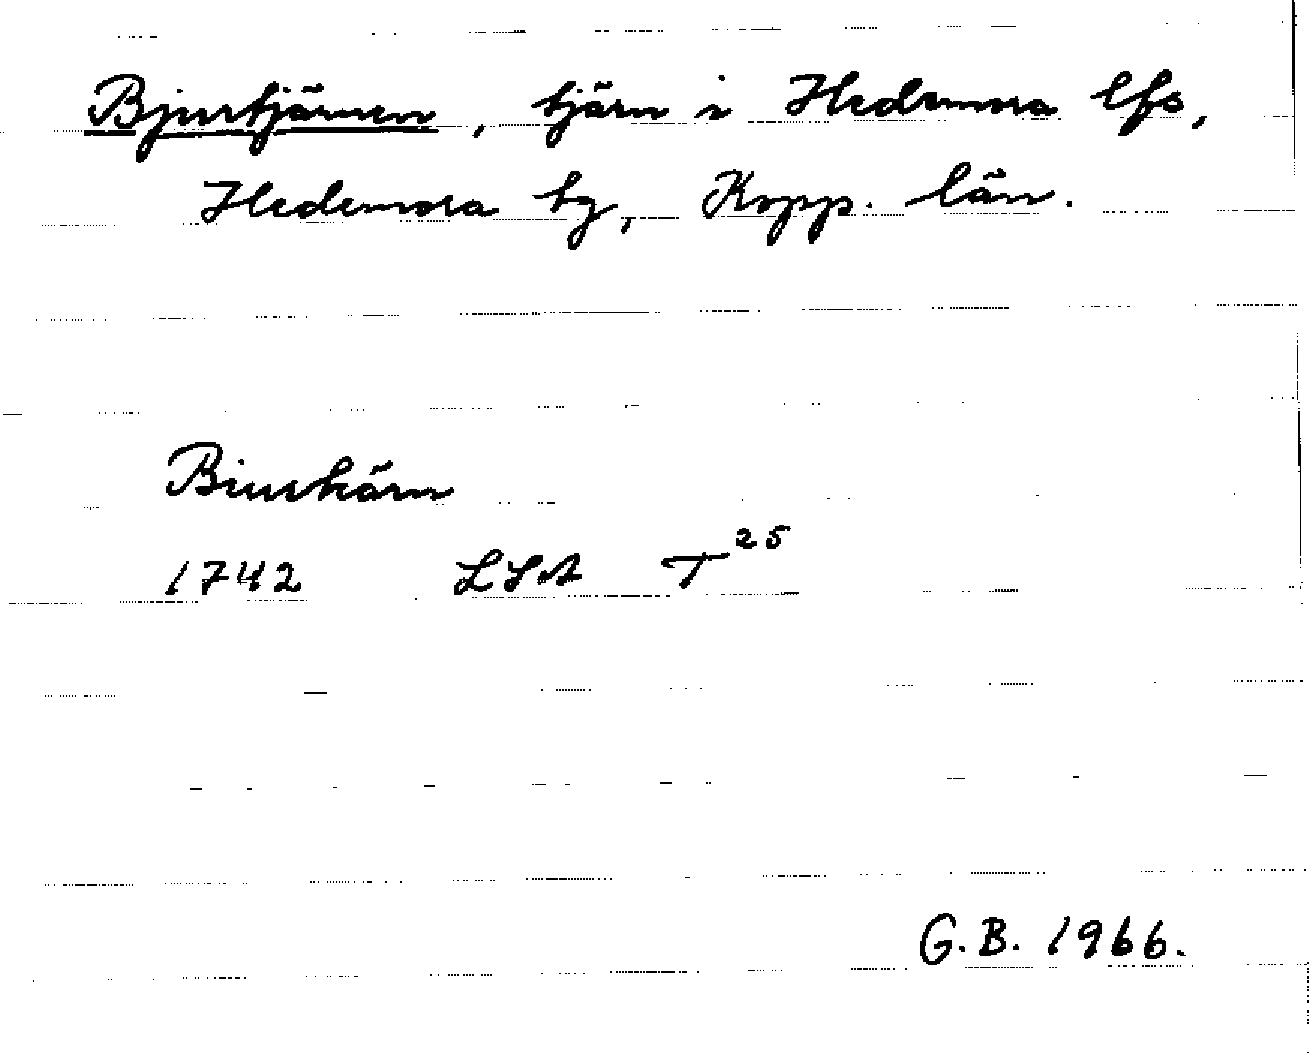 Bjurtjärnen, tjärn i Hedemora lfs,
Hedemora tg, Kopp. län.
Biurkärn
1742 LSA T²⁵
G.B. 1966.